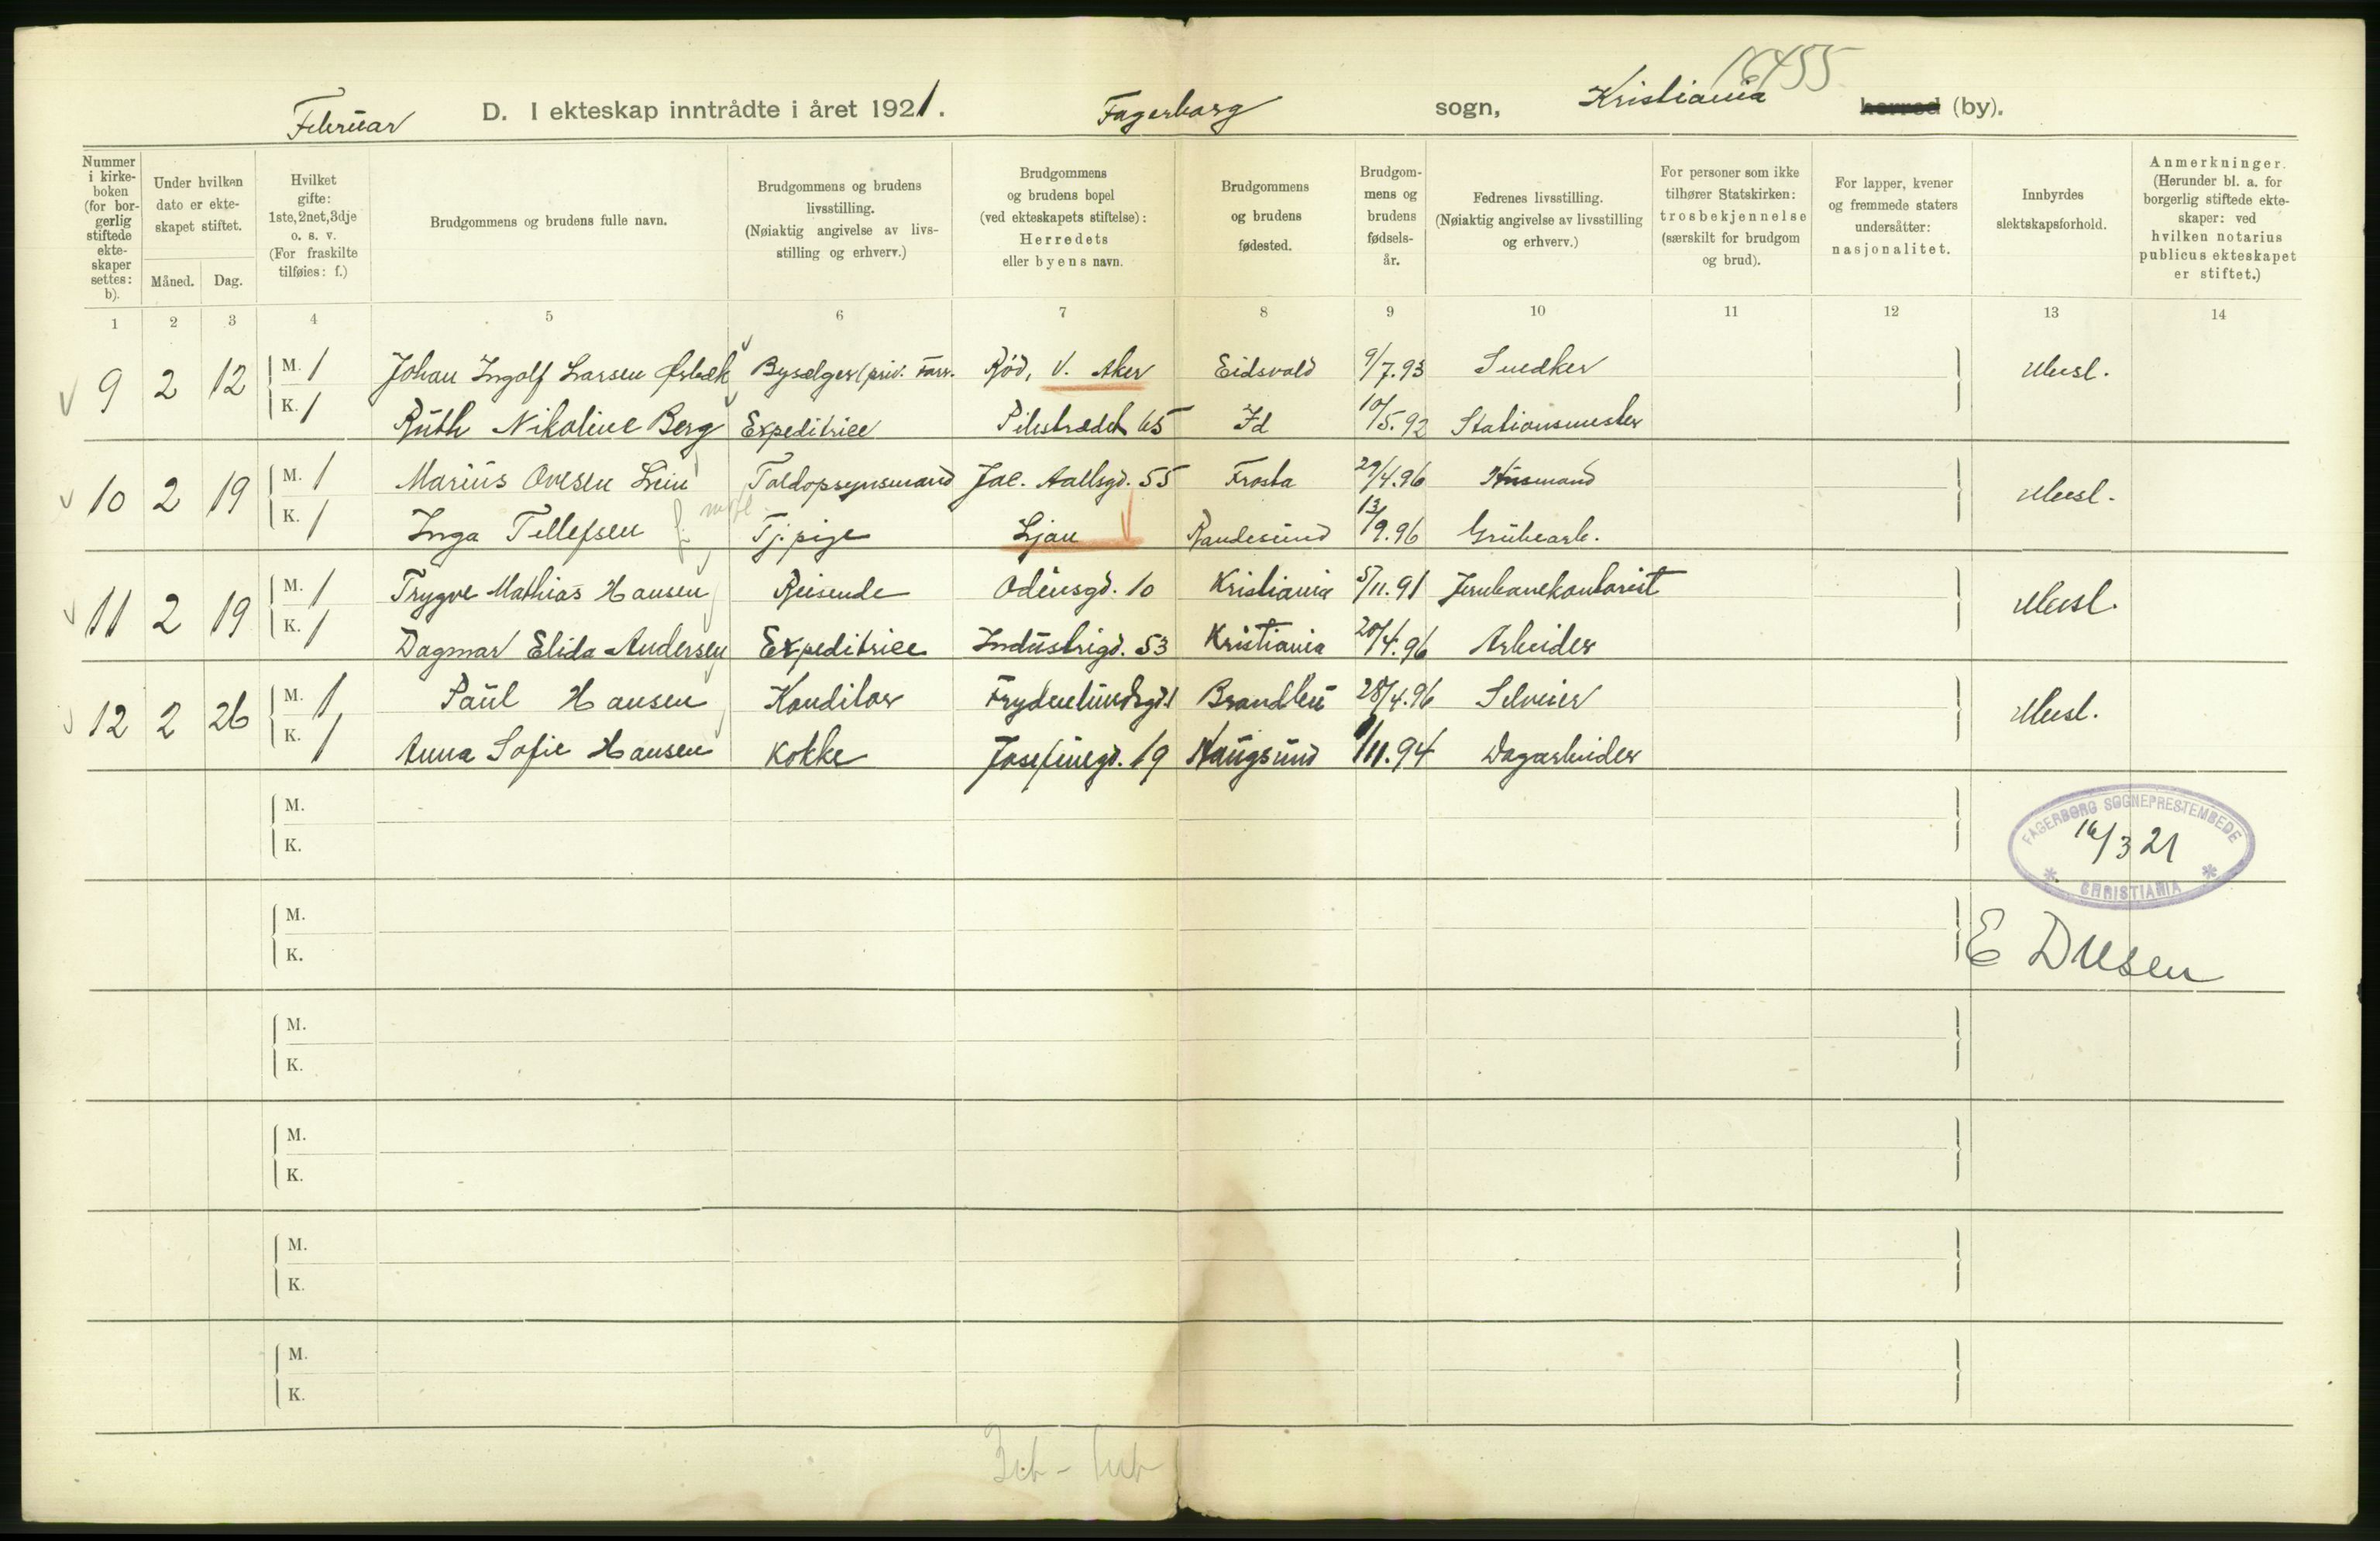 16455
Februar D. I ekteskap inntrådte i året 1921. Fagerborg sogn, Kristiania herred (by).
Nummer i kirke-boken (for bor-gerlig stiftede ekte-skaper settes: b).
Under hvilken dato er ekte-skapet stiftet.
Måned. Dag.
Hvilket gifte: 1ste, 2net, 3dje o. s. v. (For fraskilte tilføies: f.)
Brudgommens og brudens fulle navn.
Brudgommens og brudens livsstilling. (Nøiaktig angivelse av livs-stilling og erhverv.)
Brudgommens og brudens bopel (ved ekteskapets stiftelse): Herredets eller byens navn.
Brudgommens og brudens fødested.
Brudgom-mens og brudens fødsels-år.
Fedrenes livsstilling. (Nøiaktig angivelse av livsstilling og erhverv.)
For personer som ikke tilhører Statskirken: trosbekjennelse (særskilt for brudgom og brud).
For lapper, kvener og fremmede staters undersåtter: nasjonalitet.
Innbyrdes slektskapsforhold.
Anmerkninger. (Herunder bl. a. for borgerlig stiftede ekte-skaper: ved hvilken notarius publicus ekteskapet er stiftet.)
1 2 3 4 5 6 7 8 9 10 11 12 13 14
9 2 12 M. 1 Johan Ingolf Larsen Ørbæk Bysælger (priv. forr. Rød, V. Aker Eidsvold 9/7.93 Snedker Ubesl.
K. 1 Ruth Nikoline Berg Expeditrice Pilestrædet 65 Id 10/5.92 Stationsmester
10 2 19 M. 1 Marius Ovesen Lein Toldopsynsmand Jac. Aallsgd. 55 Frosta 29/4.96 Husmand Ubesl.
K. 1 Inga Tellefsen Tj.pige Ljan Randesund 13/9.96 Grubearb.
11 2 19 M. 1 Trygve Mathias Hansen Reisende Odinsgd. 10 Kristiania 5/11.91 Jernbanekontorist Ubesl.
K. 1 Dagmar Elida Andersen Expeditrice Industrigd. 53 Kristiania 20/4.96 Arbeider
12 2 26 M. 1 Paul Hansen Konditor Frydenlundsgd. 1 Brandbu 28/4.96 Selveier Ubesl.
K. 1 Anna Sofie Hansen Kokke Josefinegd. 19 Haugsund 1/11.94 Dagarbeider
M.
K.
FAGERBORG SOGNEPRESTEMBEDE
16/3 21
CHRISTIANIA
M.
K.
E Dusen
M.
K.
M.
K.
M.
K.
M.
K.